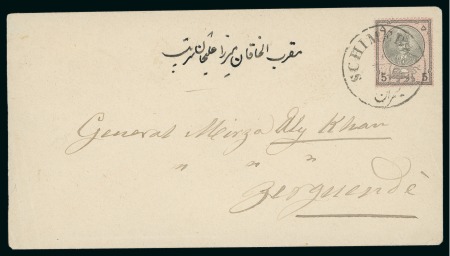 مقرب الخاقان میرزا علیخان سرتیپ
SCHIMR
5 5
General Mirza Aly Khan
" " "
Zerguendè